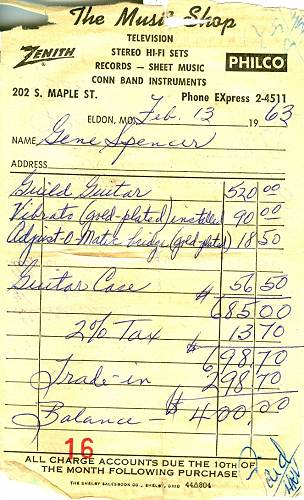 The Music Shop
TELEVISION
ZENITH STEREO HI-FI SETS PHILCO
RECORDS — SHEET MUSIC
CONN BAND INSTRUMENTS
202 S. MAPLE ST. Phone EXpress 2-4511
ELDON, MO. Feb. 13 1963
NAME Gene Spencer
ADDRESS
Guild Guitar 520 00
Vibrato (gold-plated) installed 90 00
Adjust-O-Matic bridge (gold-plated) 18 50
Guitar Case 56 50
$ 685.00
2% Tax 13 70
$ 698.70
Trade-in 298.70
Balance — $ 400.00
16
ALL CHARGE ACCOUNTS DUE THE 10TH OF
THE MONTH FOLLOWING PURCHASE
THE SHELBY SALESBOOK CO., SHELBY, OHIO 44A804